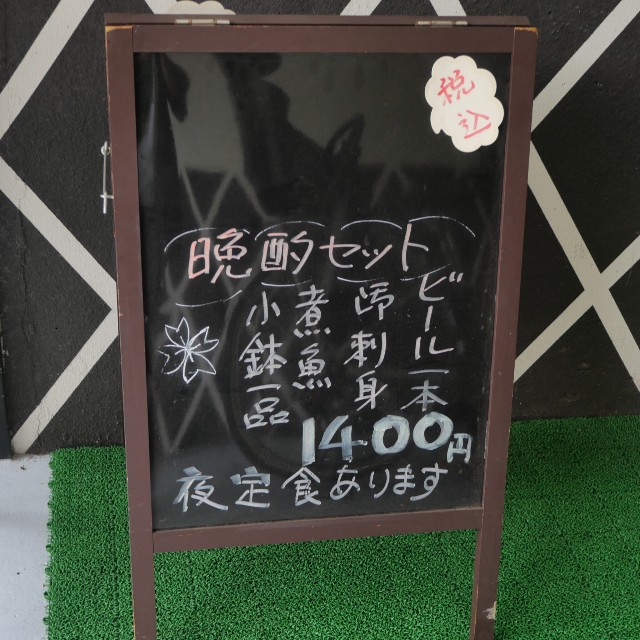 税込
晩酌セット
ビール一本
お刺身
煮魚
小鉢一品
1400円
夜定食あります